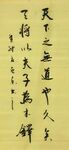 天下之無道也久矣
天將以夫子為木鐸